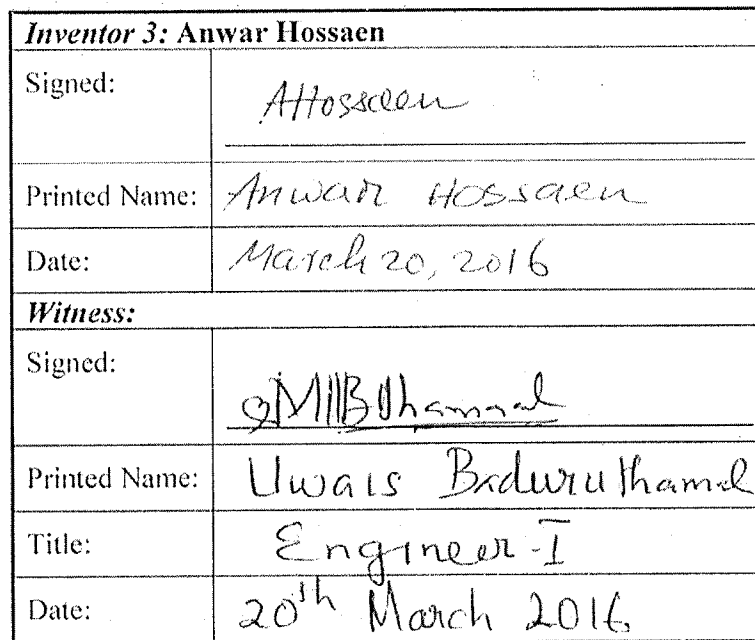 Inventor 3: Anwar Hossaen
Signed: AHossaen
Printed Name: Anwar Hossaen
Date: March 20, 2016
Witness:
Signed:
Printed Name: Uwais
Title: Engineer-I
Date: 20th March 2016